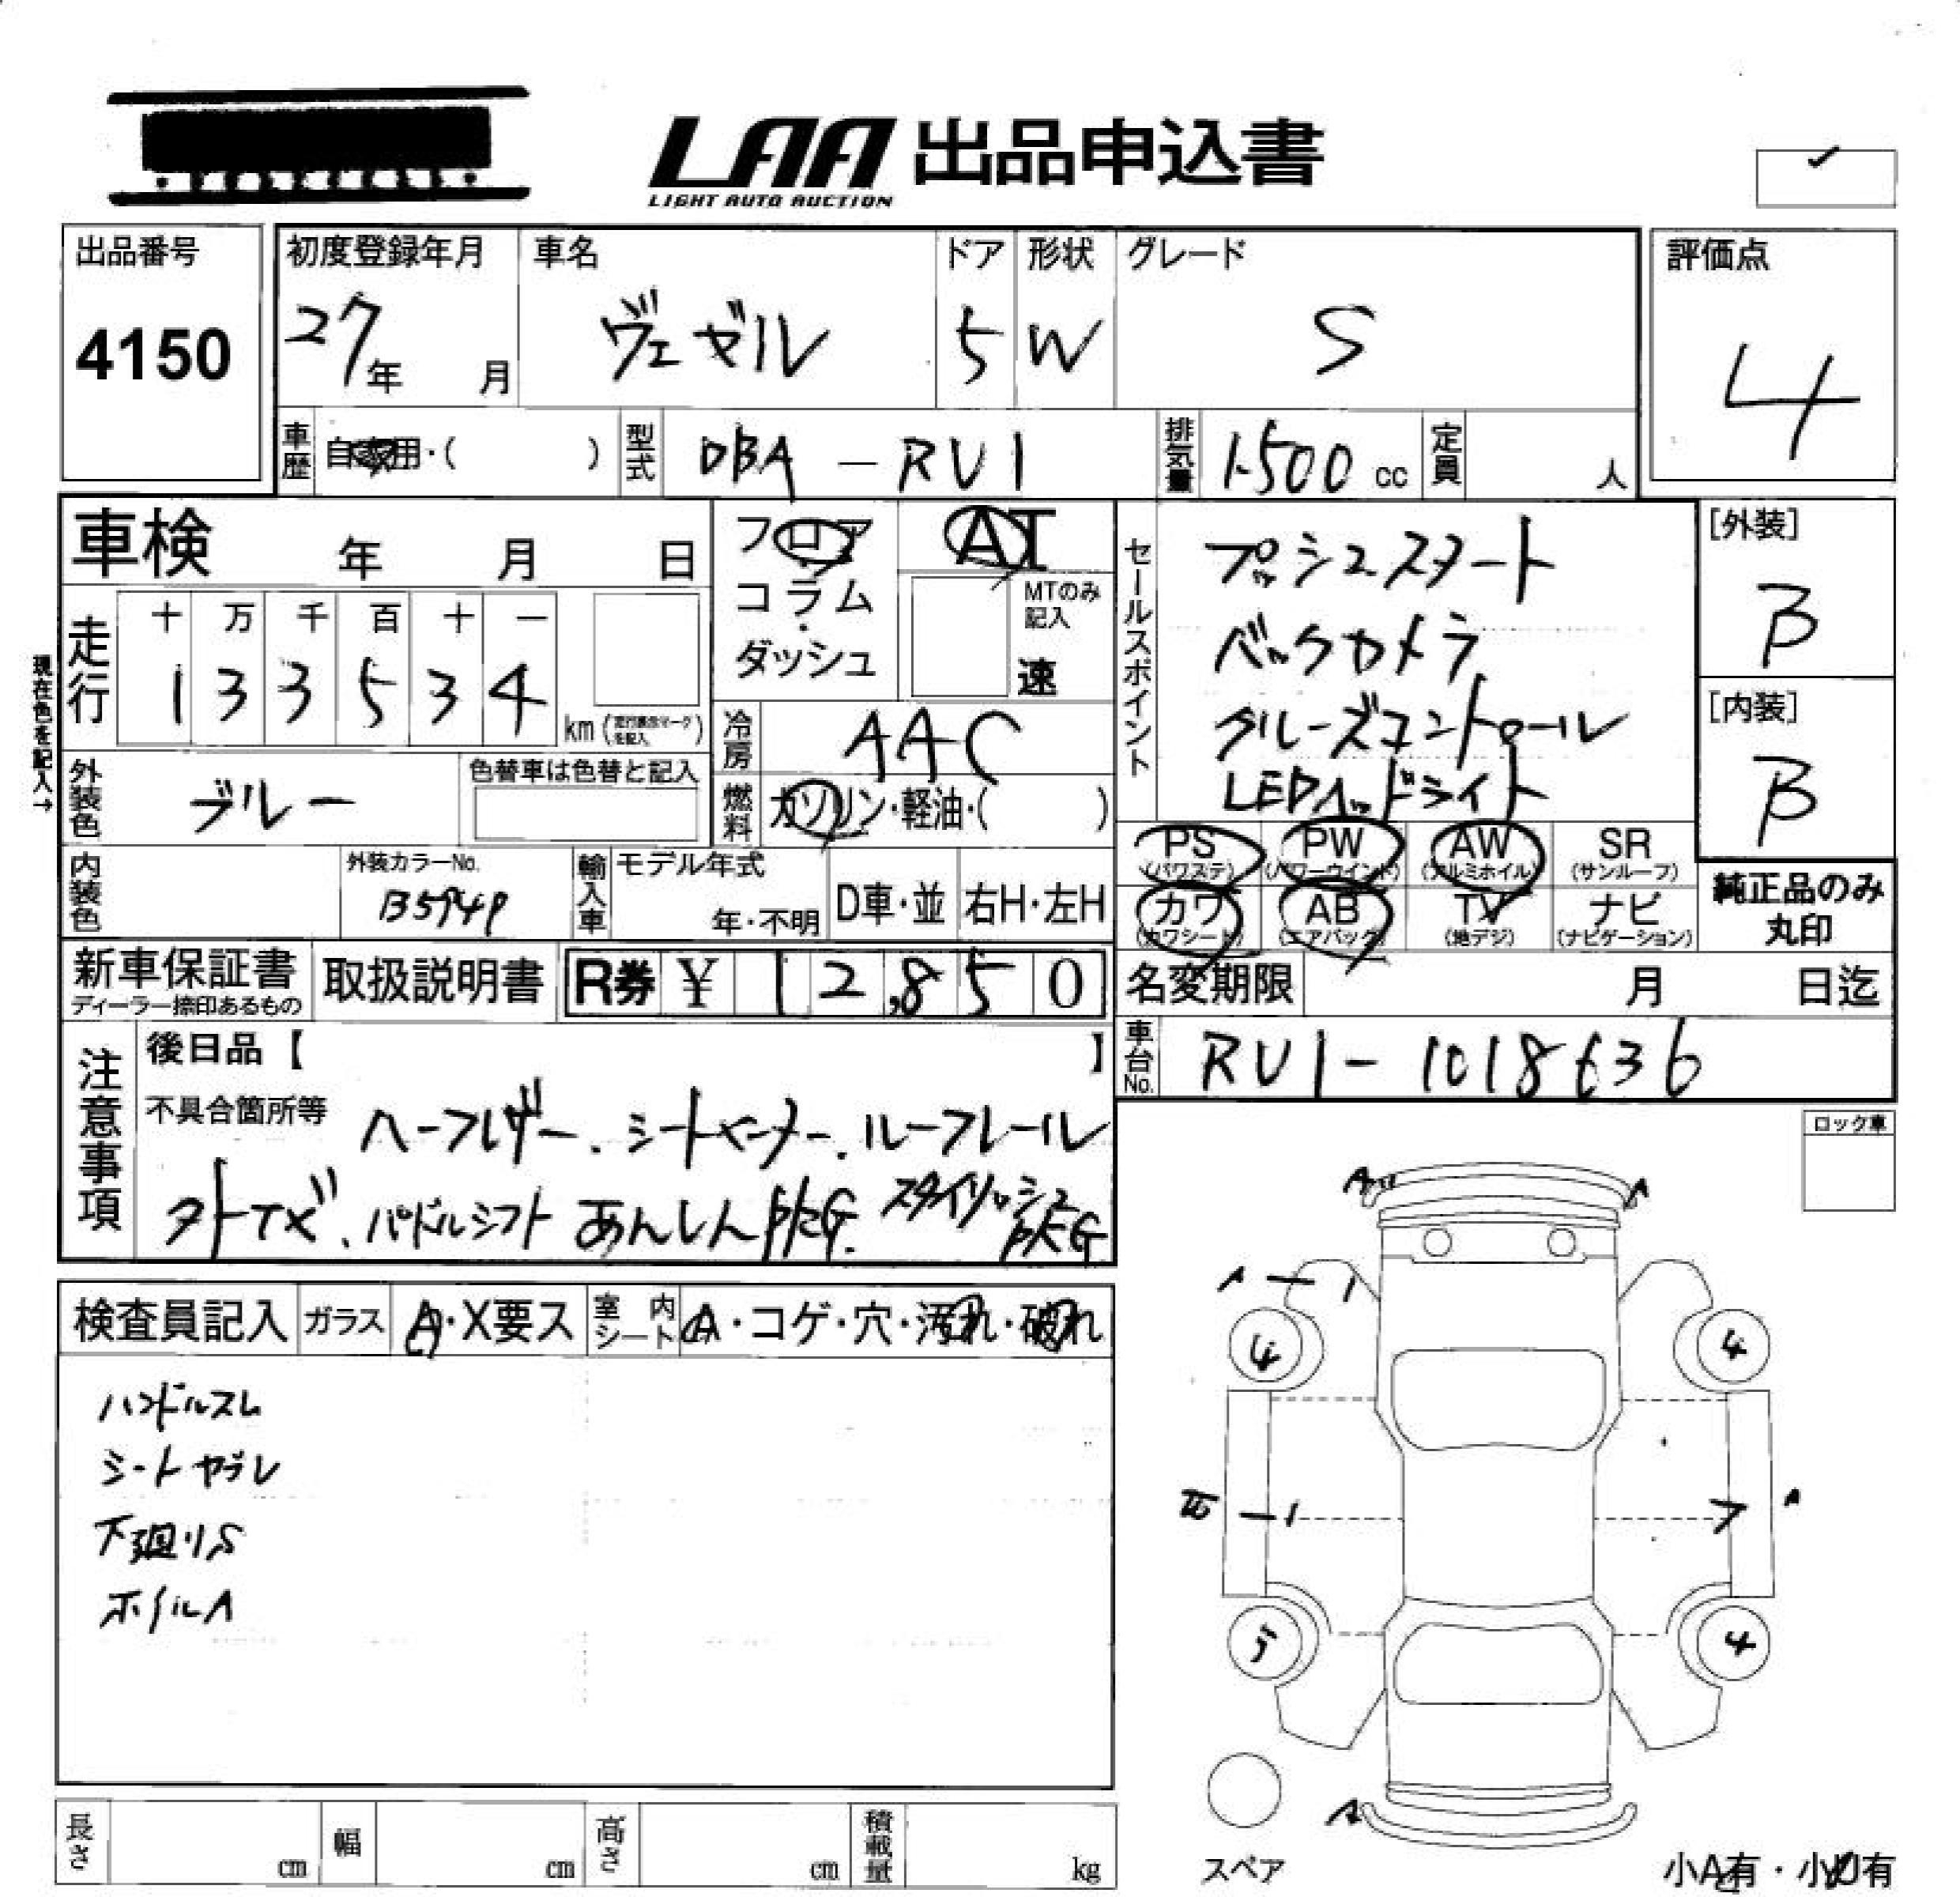 LAA 出品申込書
LIGHT AUTO AUCTION
出品番号
4150
初度登録年月
27年 月
車名
ヴェゼル
ドア
5
形状
W
グレード
S
評価点
4
車歴
自家用・( )
型式
DBA-RU1
排気量
1500 cc
定員
人
車検 年 月 日
走行
十 万 千 百 十 一
1 3 3 5 3 4
km (走行表示マークを記入)
現在色を記入→
外装色
ブルー
色替車は色替と記入
内装色
外装カラーNo.
B594P
輸入車
モデル年式
年・不明
D車・並
右H・左H
フロア
コラム・
ダッシュ
AT
MTのみ記入
速
冷房
AAC
燃料
ガソリン・軽油・( )
セールスポイント
プッシュスタート
バックカメラ
クルーズコントロール
LEDヘッドライト
[外装]
B
[内装]
B
PS (パワステ)
PW (パワーウインド)
AW (アルミホイル)
SR (サンルーフ)
カワ (カワシート)
AB (エアバック)
TV (地デジ)
ナビ (ナビゲーション)
純正品のみ
丸印
新車保証書
ディーラー捺印あるもの
取扱説明書
R券 ¥ 12,850
名変期限 月 日迄
車台No.
RU1-1018636
注意事項
後日品【 】
不具合箇所等
ハーフレザー、シートヒーター、ルーフレール
パドルシフト あんしんPKG. スタイリッシュPKG
ロック車
検査員記入
ガラス
A・X要ス
室内シート
A・コゲ・穴・汚れ・破れ
ハンドルスレ
シートヤブレ
下廻りS
ホイルA
A
A
A-1
4
4
-1
A
5
4
A
スペア
小A有・小U有
長さ cm
幅 cm
高さ cm
積載量 kg